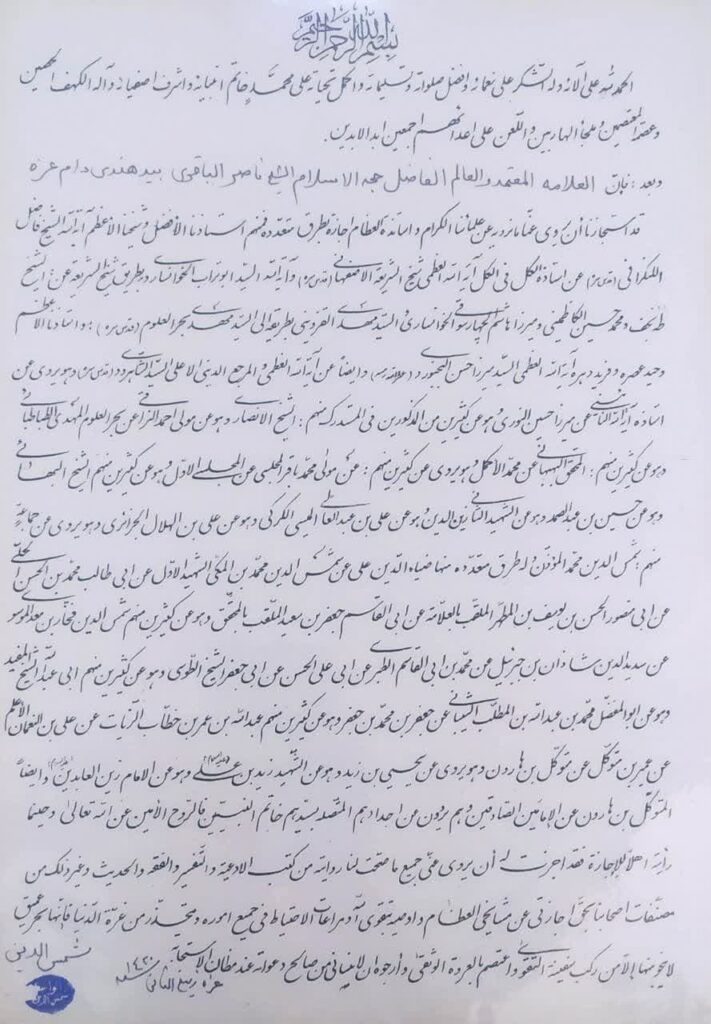 بسم الله الرحمن الرحيم
الحمد لله على آلائه وله الشكر على نعمائه وافضل صلواته وتسليماته واكمل تحياته على محمد خاتم انبيائه واشرف اصفيائه وآله الكهف الحصين
وعصمة المعتصمين وملجأ الهاربين واللعن على اعدائهم اجمعين ابد الآبدين.
وبعد: فإن العلامه المعتمد والعالم الفاضل حجه الاسلام الشيخ ناصر الباقوى بيدهندى دام عزه
قد استجازنا أن يروى عنا ما نرويه عن علمائنا الكرام واساتذة العظام اجازة بطرق متعدده فمنهم استاذنا الافضل وشيخنا الاعظم آية الله الشيخ فاضل
اللنكرانى (قدس سره) عن استاذة الكل فى الكل آية الله العظمى شيخ الشريعة الاصفهانى (قدس سره) وآية الله السيد ابو تراب الخوانسارى وبطريق شيخ الشريعة عن: الشيخ
طه نجف ومحمد حسين الكاظمى وميرزا هاشم الچهارسوقى الخوانسارى والسيد مهدى القزوينى بطريقه الى السيد مهدى بحر العلوم (قدس سره): واستاذنا الاعظم
وحيد عصره وفريد دهره آية الله العظمى السيد ميرزا حسن البجنوردى وايضاً عن آية الله العظمى والمرجع الدينى الاعلى السيد الشاهرودى (قدس سره) وهو يروى عن
استاذه آية الله النائينى عن ميرزا حسين النورى وهو عن كثيرين من المذكورين فى المستدرك منهم: الشيخ الانصارى وهو عن مولى احمد النراقى عن بحر العلوم المهدى الطباطبائى
وهو عن كثيرين منهم: المحقق البهبهانى عن محمد الاكمل وهو يروى عن كثيرين منهم: عن مولى محمد باقر المجلسى عن المجلسى الاول وهو عن كثيرين منهم الشيخ البهائى
وهو عن حسين بن عبد الصمد وهو عن الشهيد الثانى زين الدين وهو عن على بن عبد العالى الميسى الكركى وهو عن على بن الهلال الجزائرى وهو يروى عن جماعة
منهم: شمس الدين محمد المؤذن وله طرق متعدده منها ضياء الدين على عن شمس الدين محمد بن المكى الشهيد الاول عن ابى طالب محمد بن الحسن الحلى
عن ابى منصور الحسن بن يوسف بن المطهر الملقب بالعلامة عن ابى القاسم جعفر بن سعيد الملقب بالمحقق وهو عن كثيرين منهم شمس الدين فخار بن معد الموسوى
عن سديد الدين شاذان بن جبرئيل عن محمد بن ابى القاسم الطبرى عن ابى على الحسن عن ابى جعفر الشيخ الطوسى وهو عن كثيرين منهم ابى عبد الله الشيخ المفيد
وهو عن ابو المفضل محمد بن عبد الله بن المطلب الشيبانى عن جعفر بن محمد بن جعفر وهو عن كثيرين منهم عبد الله بن عمر بن خطاب الزيات عن على بن النعمان الاعلم
عن عمير بن متوكل عن متوكل بن هارون وهو يروى عن يحيى بن زيد وهو عن الشهيد زيد بن على وهو عن الامام زين العابدين وايضاً
المتوكل بن هارون عن الإمامين الصادقين وهم يروون عن اجدادهم المتصله بسيدهم خاتم النبيين فالروح الأمين عن الله تعالى وحينما
رأيته اهلاً للإجازة فقد اجزت له أن يروى عنى جميع ما صحت لنا روايته من كتب الادعية والتفسير والفقه والحديث وغير ذلك من
مصنفات اصحابنا بحق اجازتى عن مشايخى العظام واوصيه بتقوى الله ومراعات الاحتياط فى جميع اموره وتحذر من غرة الدنيا فإنها بحر عميق
لا ينجو منها إلا من ركب سفينة التقوى واعتصم بالعروة الوثقى وأرجوه ان لا ينسانى من صالح دعواته عند مظان الاستجابة
غره ربيع الثانى سنة ۱۴۳۰
شمس الدين